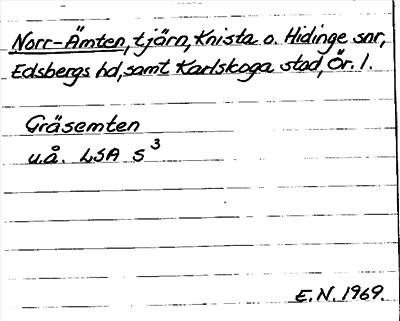 Norr-Ämten, tjärn, Knista o. Hidinge snr,
Edsbergs hd, samt Karlskoga stad, Ör. l.
Gräsemten
u.å. LSA S³
E.N. 1969.